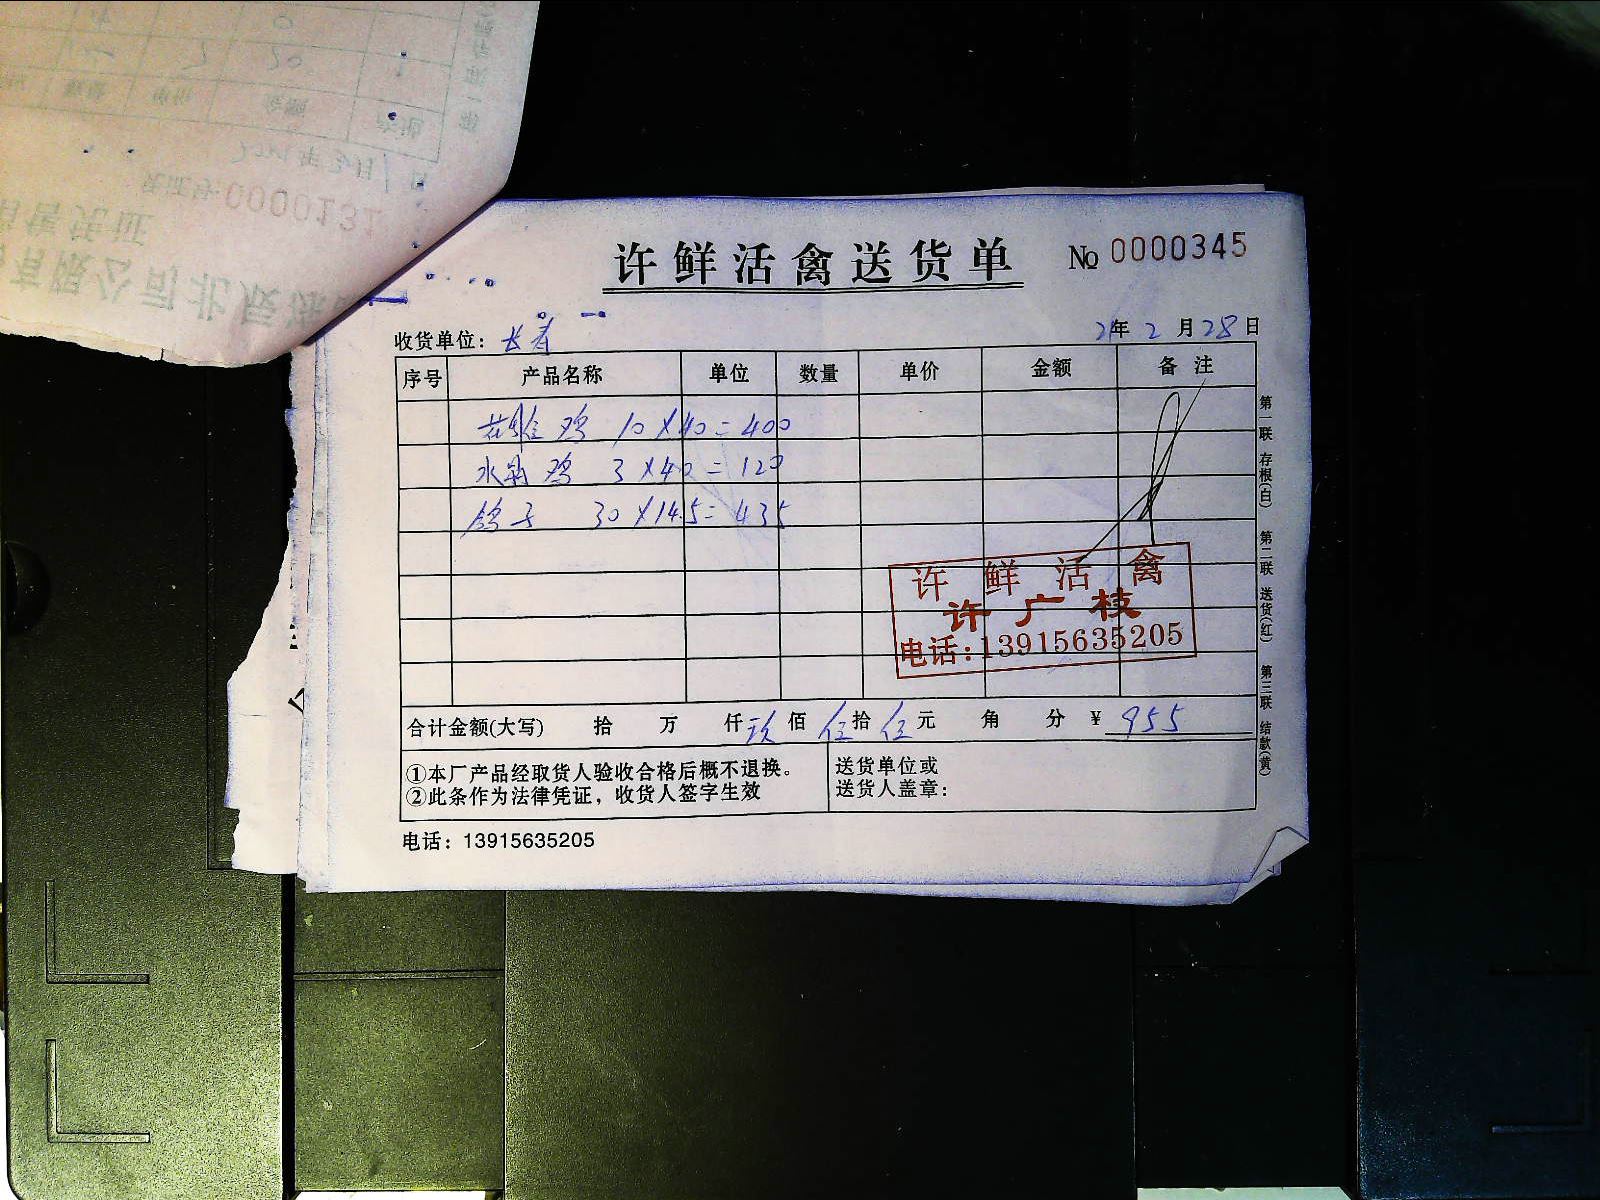 许鲜活禽送货单 No 0000345
收货单位：长春 21年 2 月 28 日
序号 产品名称 单位 数量 单价 金额 备注
花雉鸡 10×40=400
水鸡 3×40=120
鸽子 30×14.5=435
许鲜活禽
许广枝
电话：13915635205
合计金额(大写) 拾 万 仟 玖 佰 伍 拾 伍 元 角 分 ¥ 955
①本厂产品经取货人验收合格后概不退换。
②此条作为法律凭证，收货人签字生效
送货单位或
送货人盖章：
电话：13915635205
第一联 存根(白) 第二联 送货(红) 第三联 结款(黄)
0000131